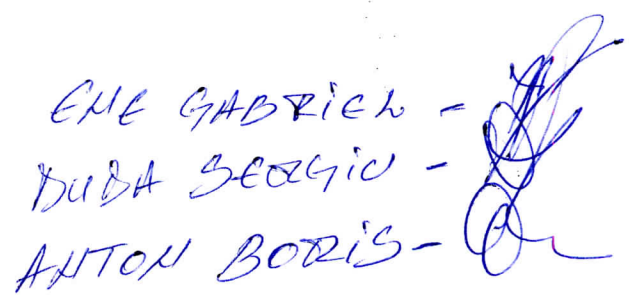 ENE GABRIEL -
DUDA SERGIU -
ANTON BORIS -